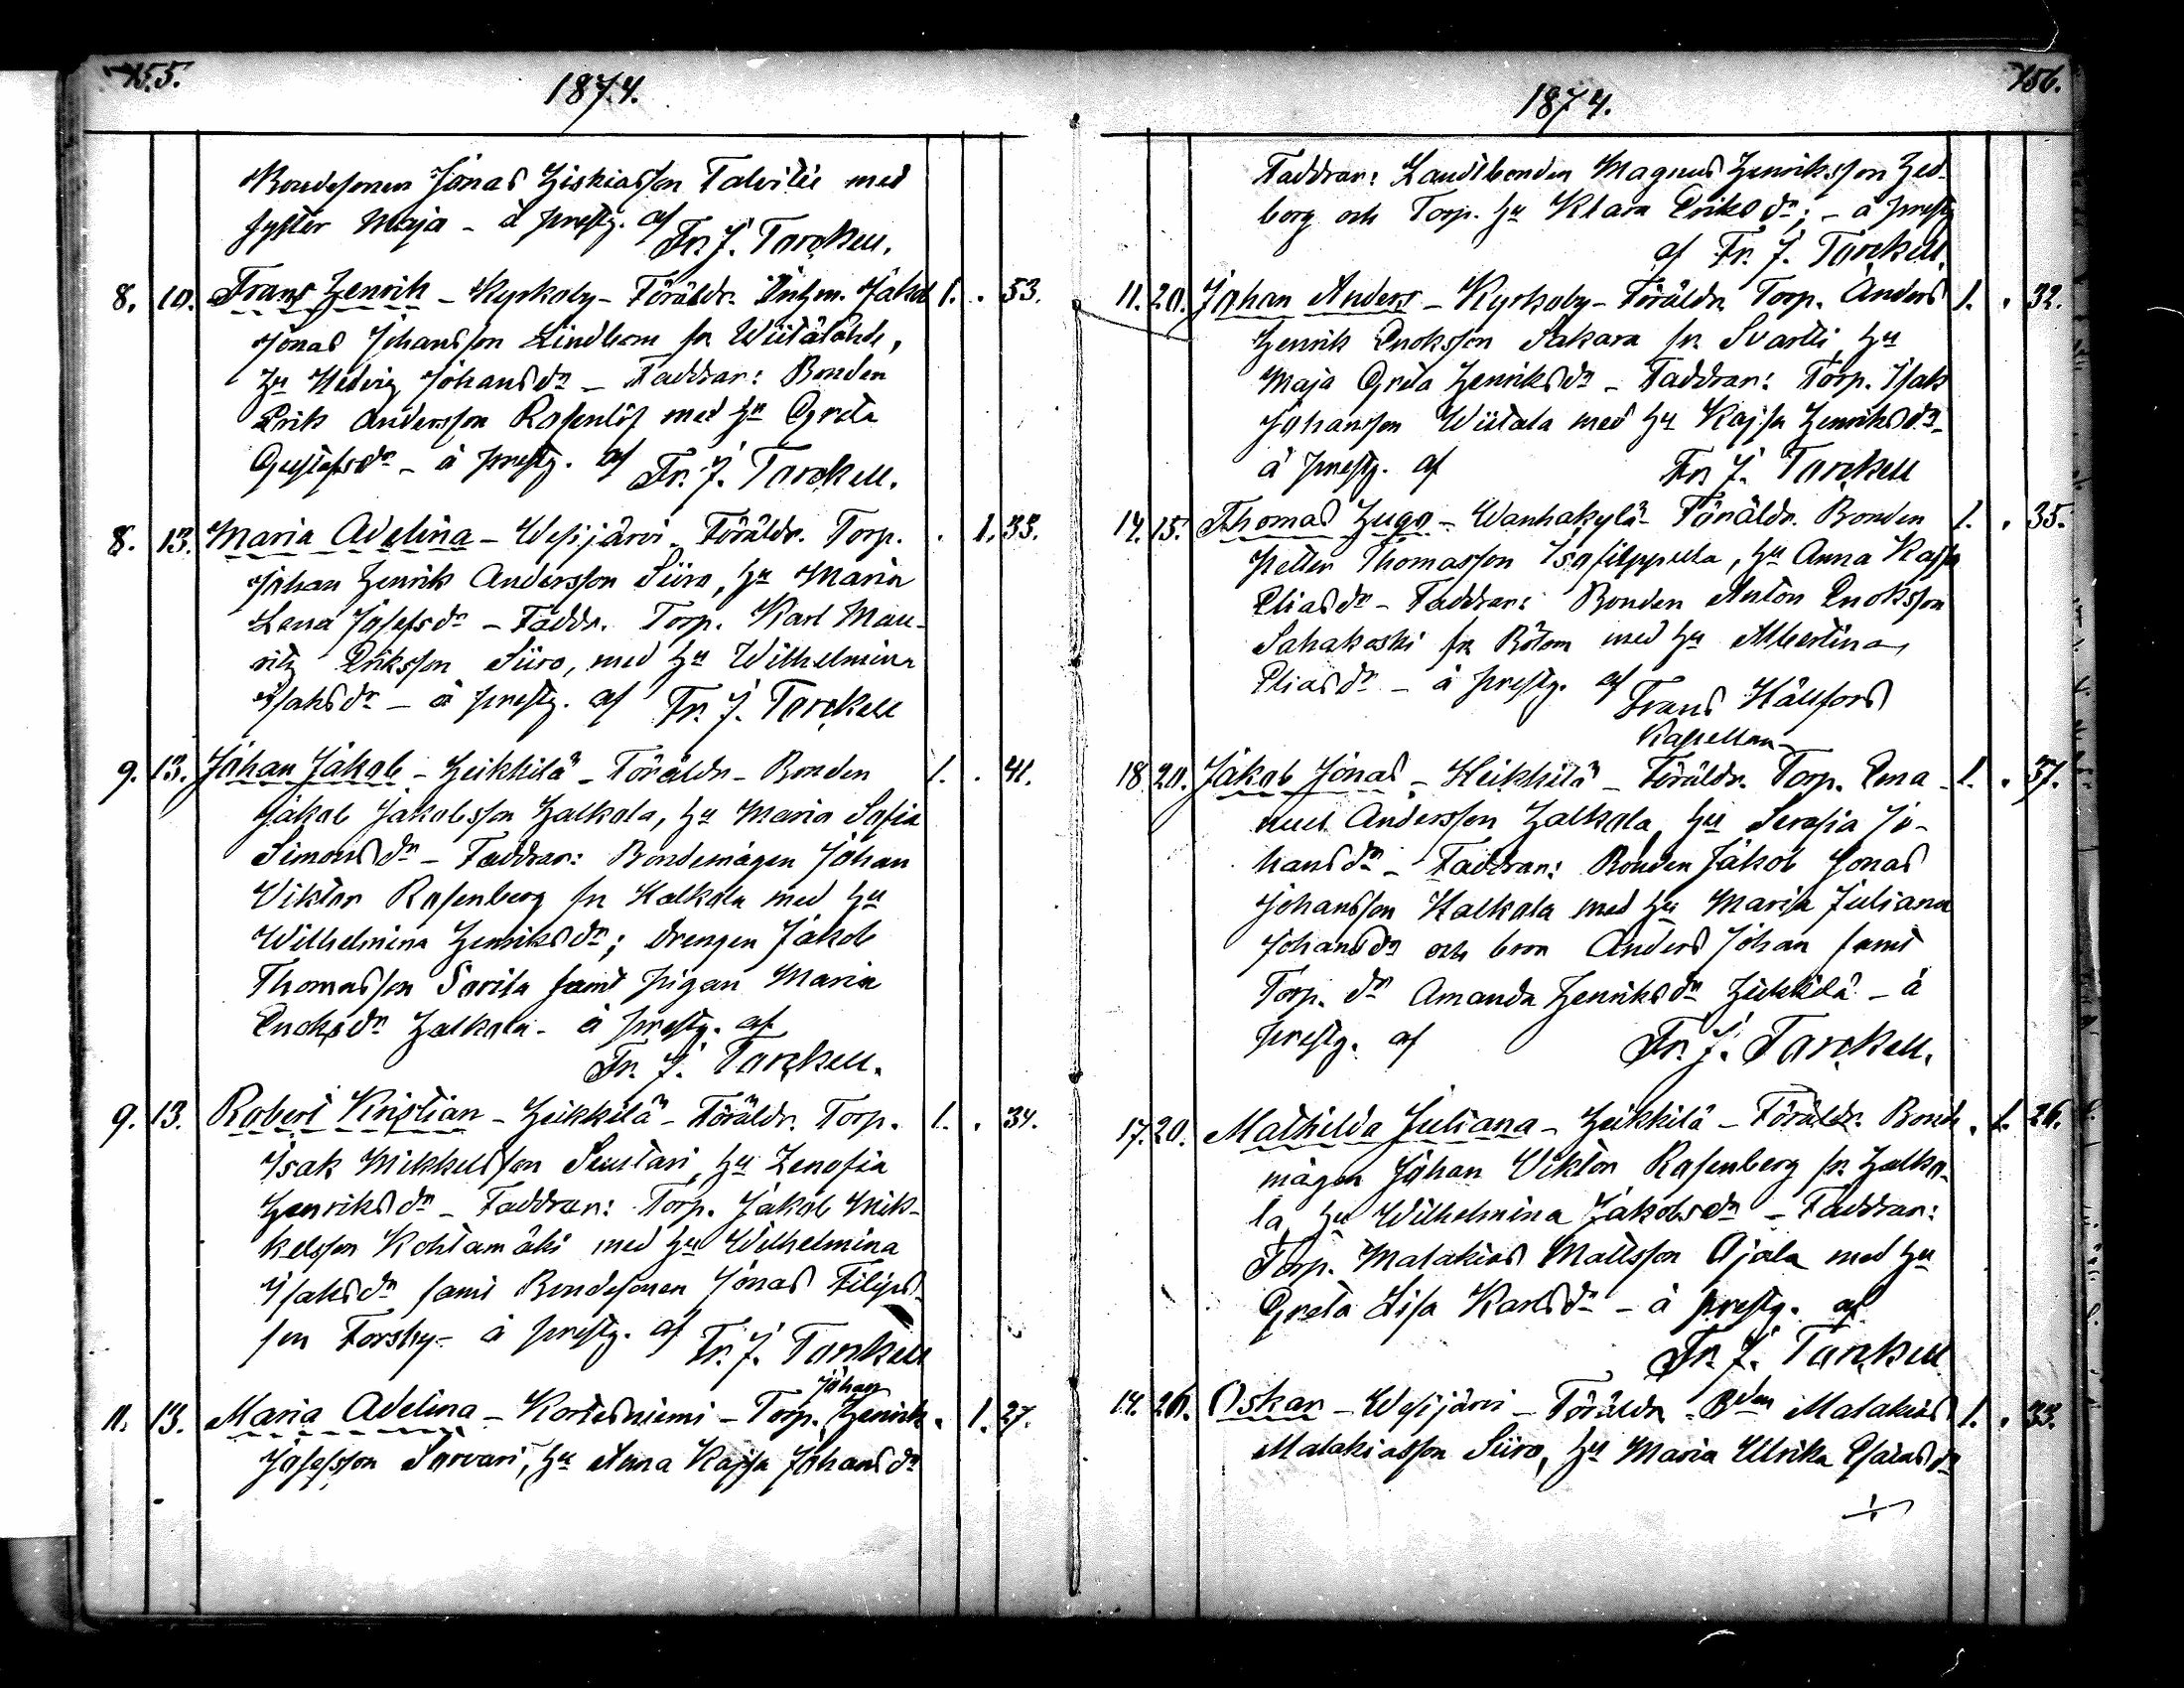 155.
1874.
Bondesonen Jonas Hiskiasson Talvitie med
syster Maja - å prestg. af Fr. J. Tarckell.
8. 10. Frans Henrik - Kyrkoby - Föräldr. Inhm. Jakob 1. . 53.
Jonas Johansson Lindbom fr Wiitälähde,
Hu Hedvig Johansdr - Faddrar: Bonden
Erik Andersson Rosenlöf med Hu Greta
Gustafsdr - å prestg. af Fr. J. Tarckell.
8. 13. Maria Adelina - Wesijärvi - Föräldr. Torp. . 1. 33.
Johan Henrik Andersson Siiro, Hu Maria
Lena Josefsdr - Faddr. Torp. Karl Mau-
ritz Eriksson Siiro, med Hu Wilhelmina
Isaksdr - å prestg. af Fr. J. Tarckell
9. 13. Johan Jakob - Heikkilä - Föräldr - Bonden 1. . 41.
Jakob Jakobsson Halkola, Hu Maria Sofia
Simonsdr - Faddrar: Bondemågen Johan
Viktor Rosenberg fr Halkola med Hu
Wilhelmina Henriksdr; drengen Jakob
Thomasson Sarila samt pigan Maria
Enoksdr Halkola - å prestg. af
Fr. J. Tarckell.
9. 13. Robert Kristian - Heikkilä - Föräldr. Torp. 1. . 34.
Isak Mikkelsson Seuntari, Hu Zenofia
Henriksdr - Faddrar: Torp. Jakob Mik-
kelsson Kohtamäki med Hu Wilhelmina
Isaksdr samt Bondesonen Jonas Filips-
son Forsby - å prestg. af Fr. J. Tarckell
Johan
11. 13. Maria Adelina - Kortesniemi - Torp. Henrik . 1. 27.
Josefsson Sarvari, Hu Anna Kajsa Johansdr
156.
1874.
Faddrar: Landtbonden Magnus Henriksson Hed-
borg och Torp. Hu Klara Eriksdr; - å prestg
af Fr. J. Tarckell.
11. 20. Johan Anders - Kyrkoby - Föräldr. Torp. Anders 1. . 32.
Henrik Enoksson Sakara fr. Svartti, Hu
Maja Greta Henriksdr - Faddrar: Torp. Isak
Johansson Wiitala med Hu Kajsa Henriksdr -
å prestg. af Fr J. Tarckell
14. 15. Thomas Hugo - Wanhakylä - Föräldr. Bonden 1. . 35.
Petter Thomasson Isofilppula, Hu Anna Kajsa
Eliasdr - Faddrar: Bonden Anton Enoksson
Sahakoski fr Bötom med Hu Albertina
Eliasdr - å prestg. af Frans Hällfors
Kapellan
18 20. Jakob Jonas - Heikkilä - Föräldr. Torp. Ema- 1. . 37.
nuel Andersson Halkola, Hu Serafia Jo-
hansdr - Faddrar: Bonden Jakob Jonas
Johansson Halkola med Hu Maria Juliana
Johansdr och bror Anders Johan samt
Torp. dr Amanda Henriksdr Heikkilä - å
prestg. af Fr. J. Tarckell.
17. 20. Mathilda Juliana - Heikkilä - Föräldr. Bonde- . 1. 26.
mågen Johan Viktor Rosenberg fr. Halko-
la, Hu Wilhelmina Jakobsdr - Faddrar:
Torp. Malakias Mattsson Ojala med Hu
Greta Lisa Karlsdr - å prestg. af
Fr. J. Tarckell
14. 26. Oskar - Wesijärvi - Föräldr. Bden Malakias 1. . 33.
Malakiasson Siiro, Hu Maria Ulrika Esaiasdr